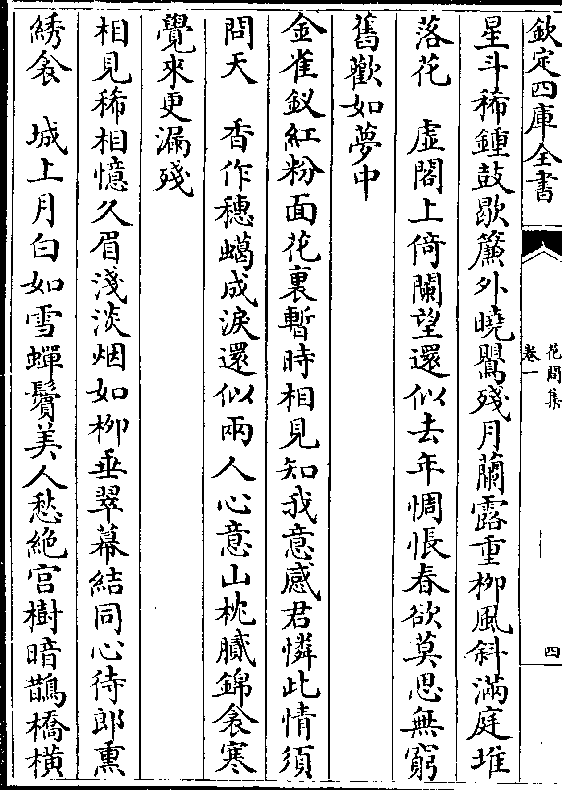 欽定四庫全書
花間集
卷一
四
星斗稀鍾鼓歇簾外曉鸎殘月蘭露重柳風斜滿庭堆
落花　虛閣上倚闌望還似去年惆悵春欲莫思無窮
舊歡如夢中
金雀釵紅粉面花裏暫時相見知我意感君憐此情須
問天　香作穗蠟成淚還似兩人心意山枕膩錦衾寒
覺來更漏殘
相見稀相憶久眉淺淡烟如柳垂翠幕結同心待郎熏
綉衾　城上月白如雪蟬鬢美人愁絶宫樹暗鵲橋橫